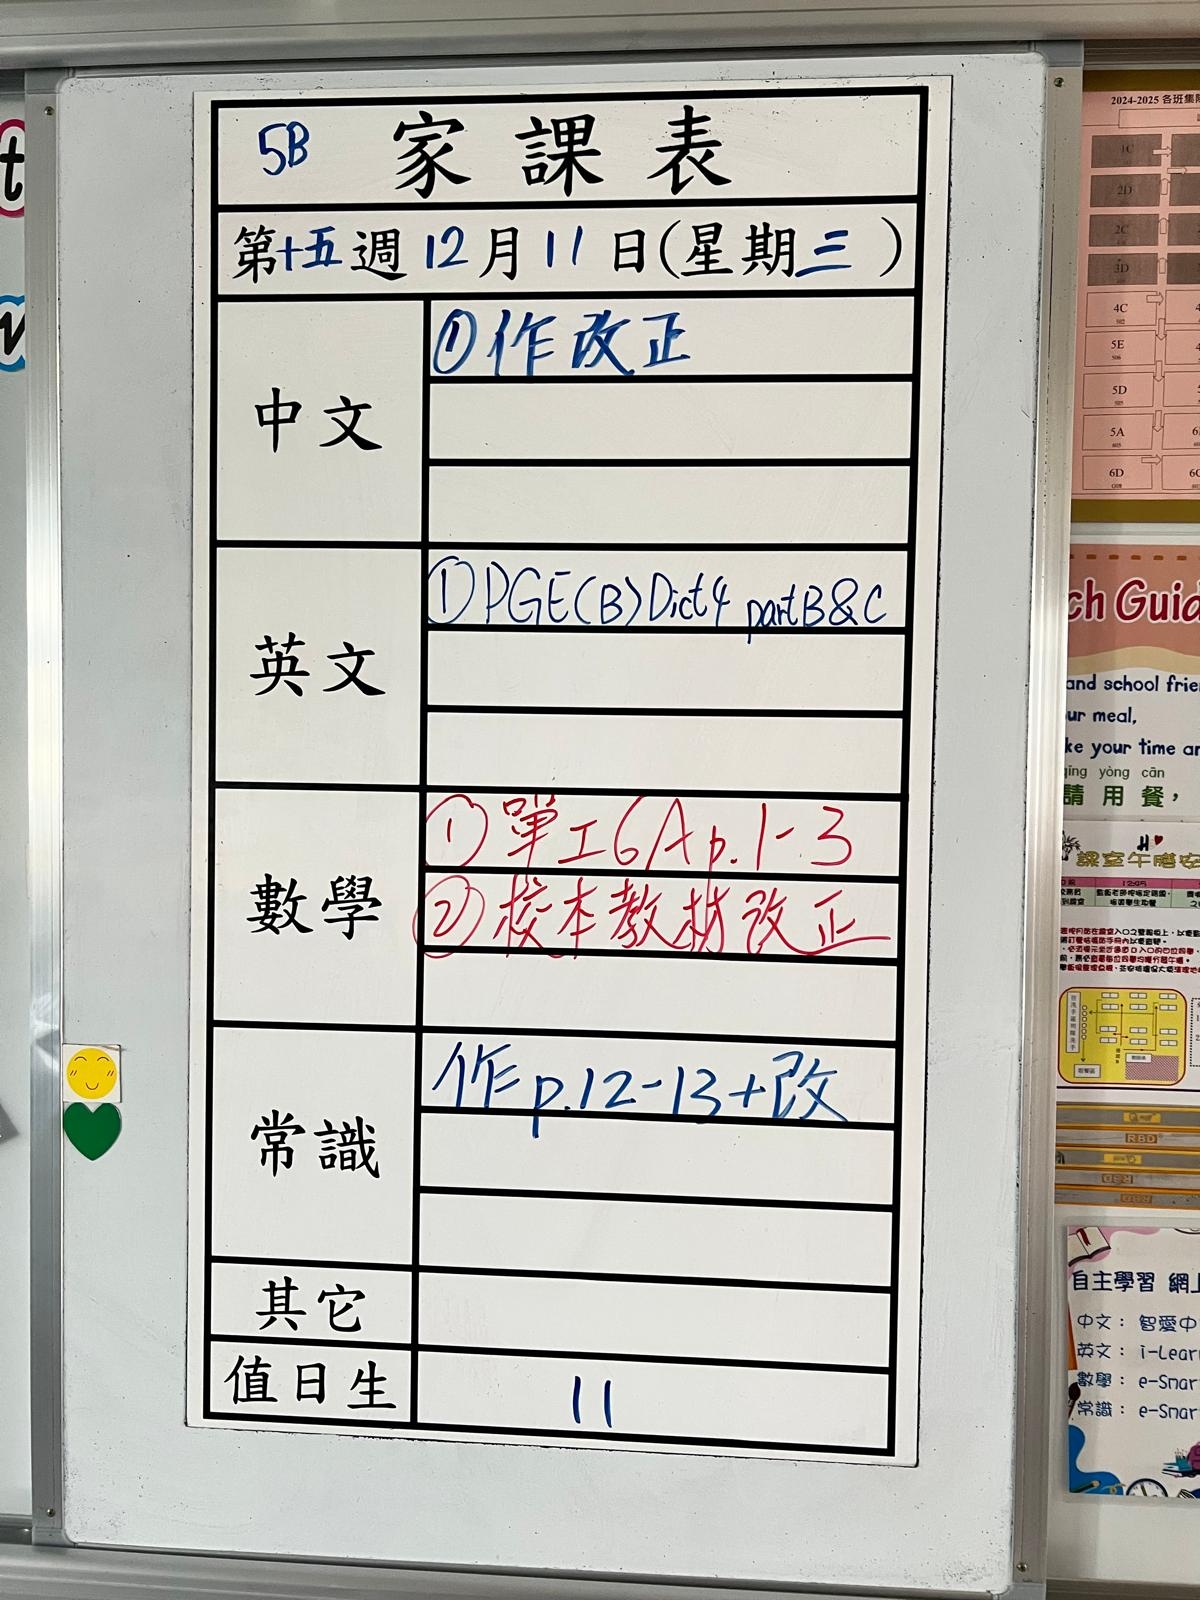 5B 家課表
第十五週12月11日(星期三)
中文
①作改正
英文
①PGE(B)Dict4 partB&C
數學
①單工6Ap.1-3
②校本教材改正
常識
作p.12-13+改
其它
值日生
11
t
2024-2025 各班集隊
1C
2D
2C
3D
4C
5E
5D
5A
6D
ch Guid
and school frie
ur meal,
ke your time an
qǐng yòng cān
請用餐，
課室午膳安
RBD
自主學習 網上
中文： 智愛中
英文： i-Lear
數學： e-Smar
常識： e-Smar